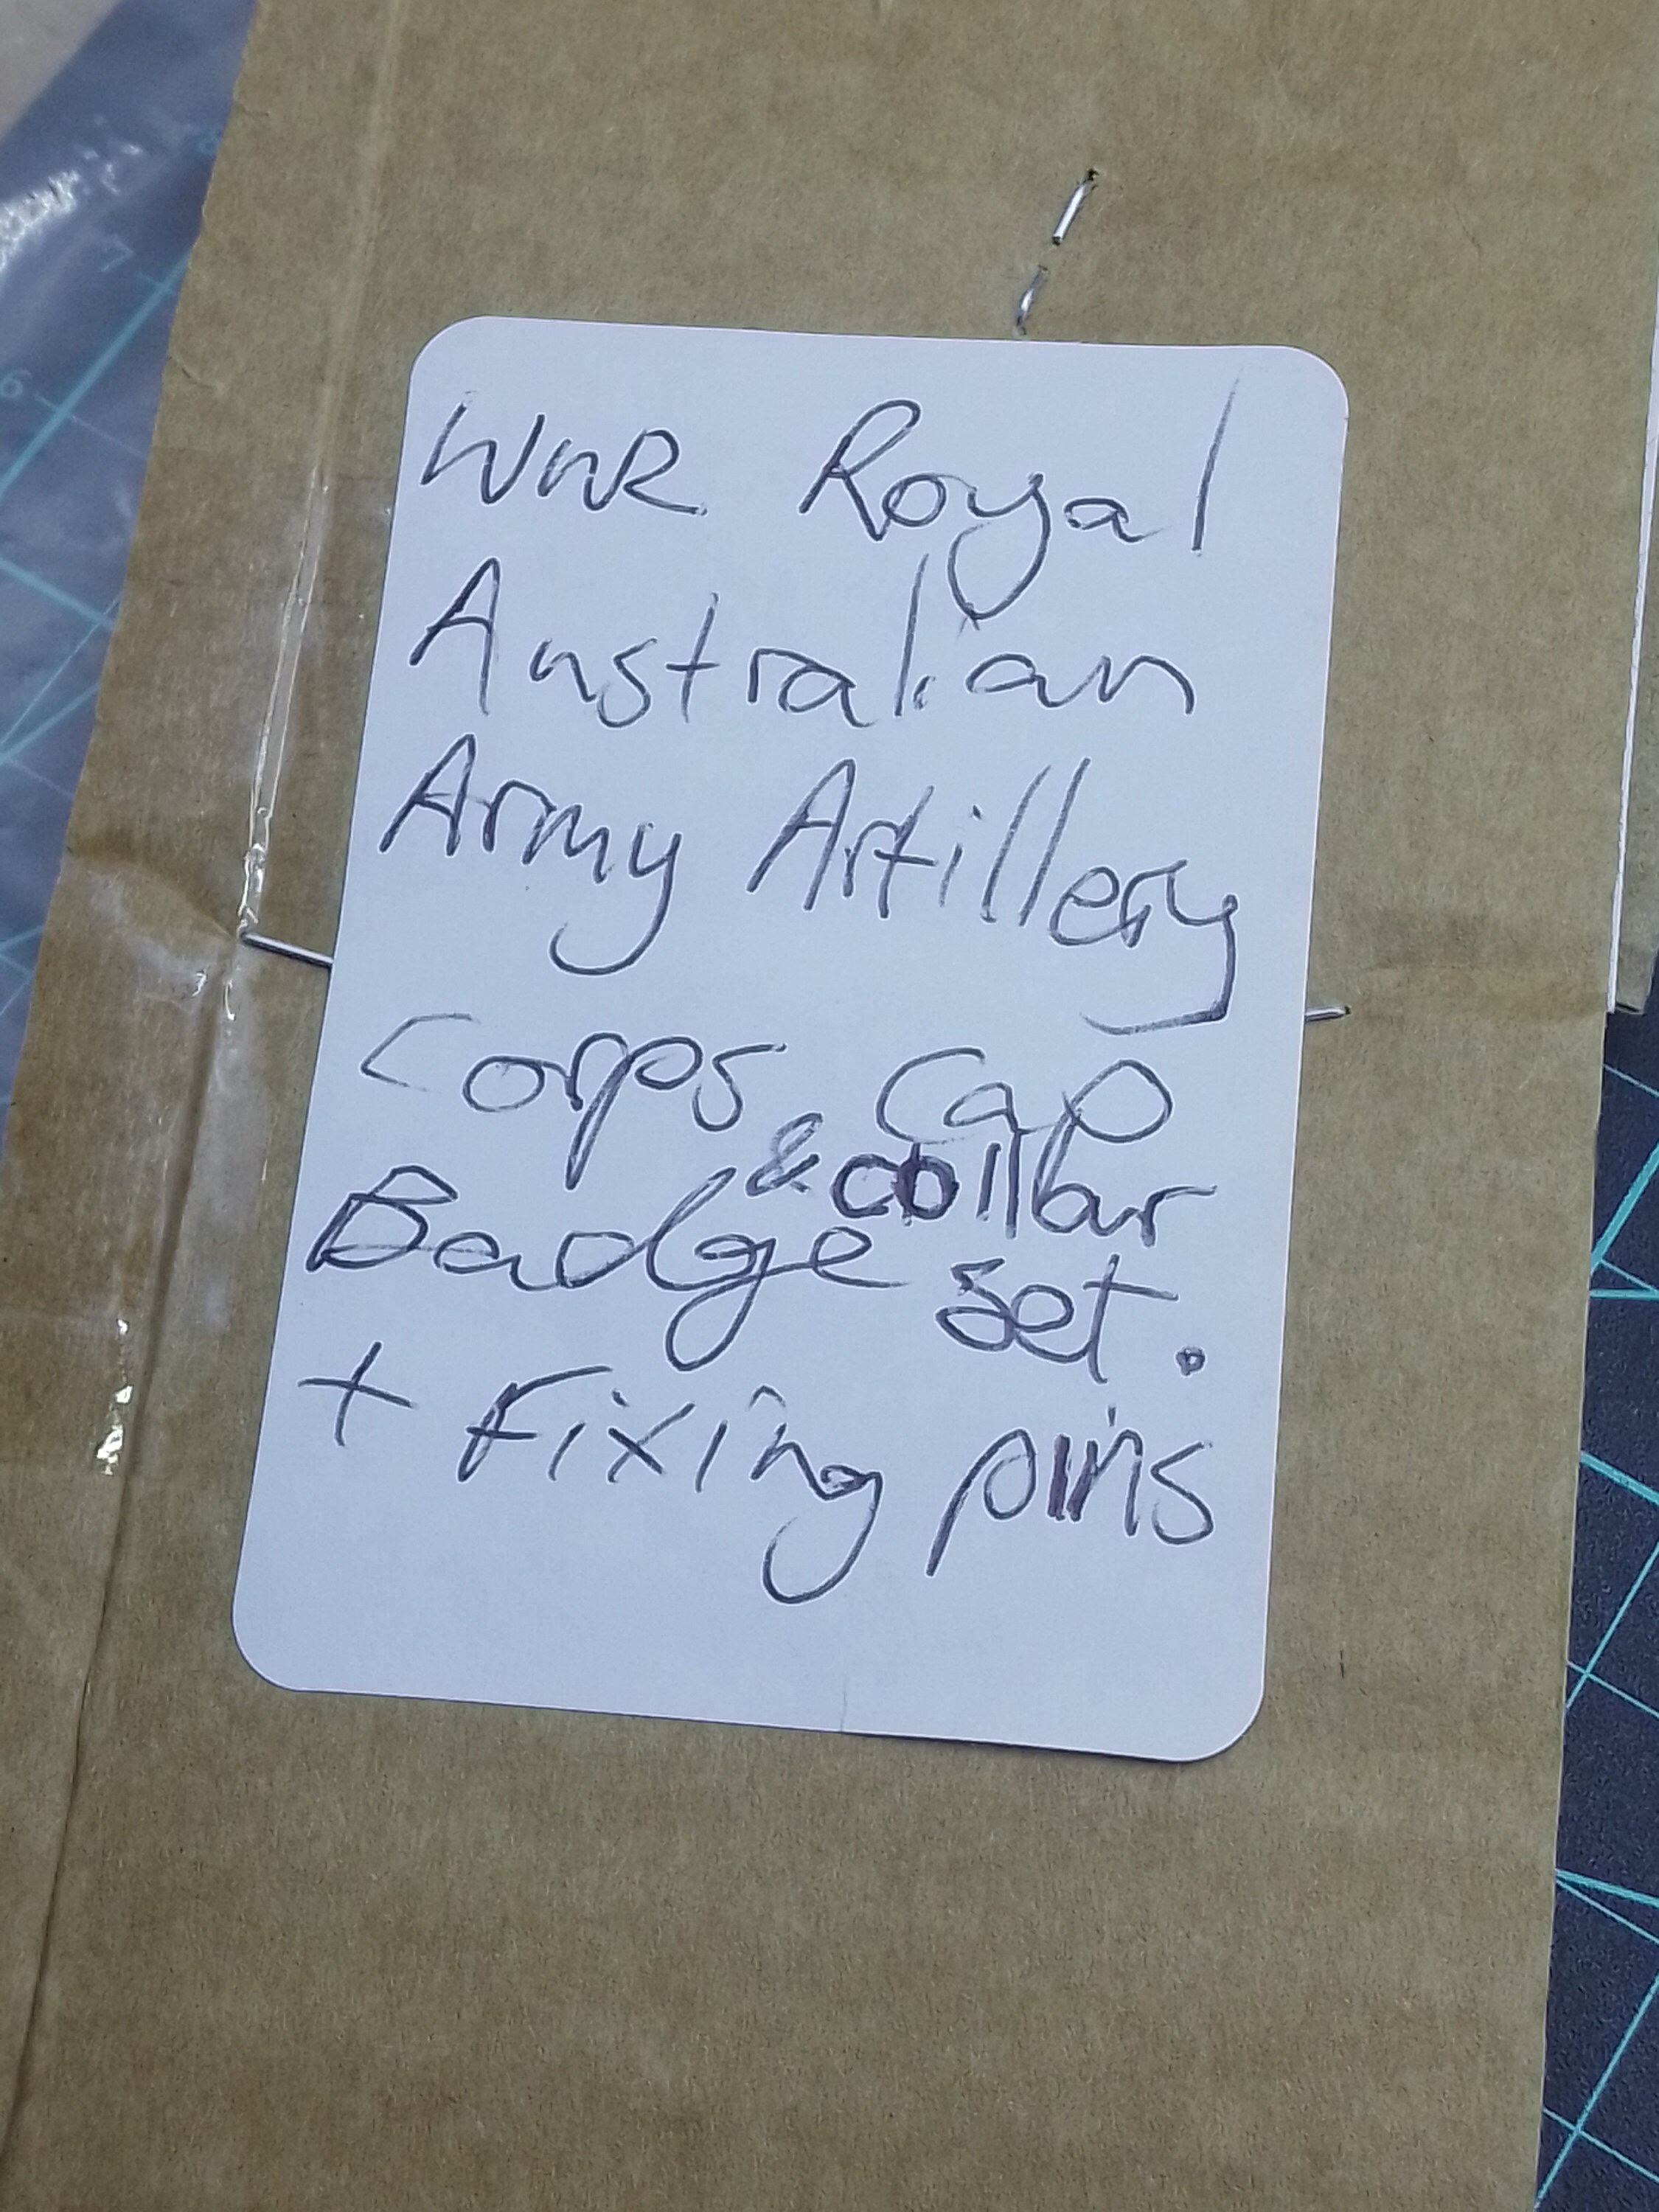 WWR Royal
Australian
Army Artillery
Corps Cap
& collar
Badge set.
+ Fixing pins
7
6